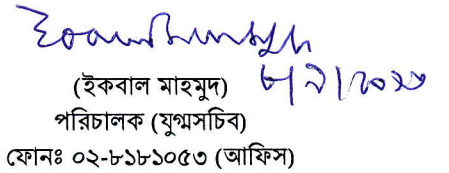 (ইকবাল মাহমুদ)
পরিচালক (যুগ্মসচিব)
ফোনঃ ০২-৮১৮১০৫৩ (আফিস)